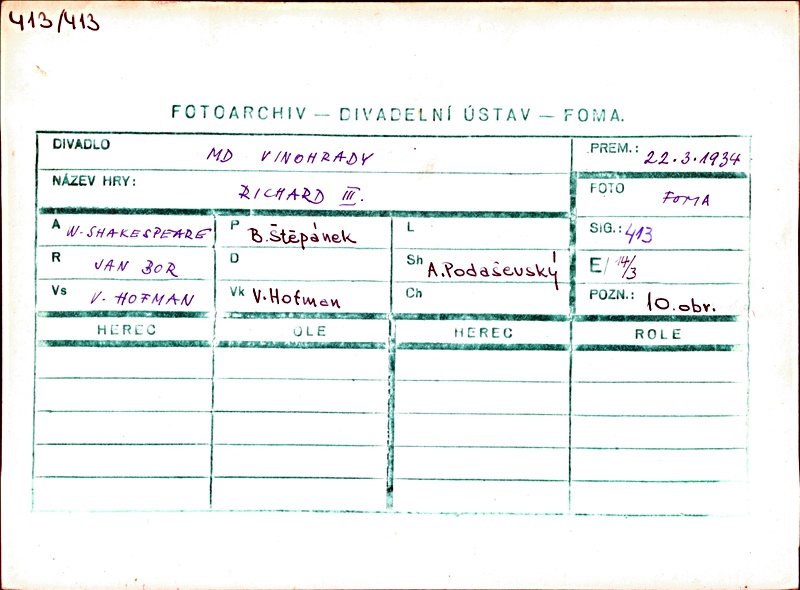 413/413
FOTOARCHIV — DIVADELNÍ ÚSTAV — FOMA.
DIVADLO MD VINOHRADY PREM.: 22.3.1934
NÁZEV HRY: RICHARD III. FOTO FOMA
A W. SHAKESPEARE P B. Štěpánek L SIG.: 413
R JAN BOR D Sh A. Podaševský E/ 14/3
Vs V. HOFMAN Vk V. Hofman Ch POZN.: 10. obr.
HEREC OLE HEREC ROLE